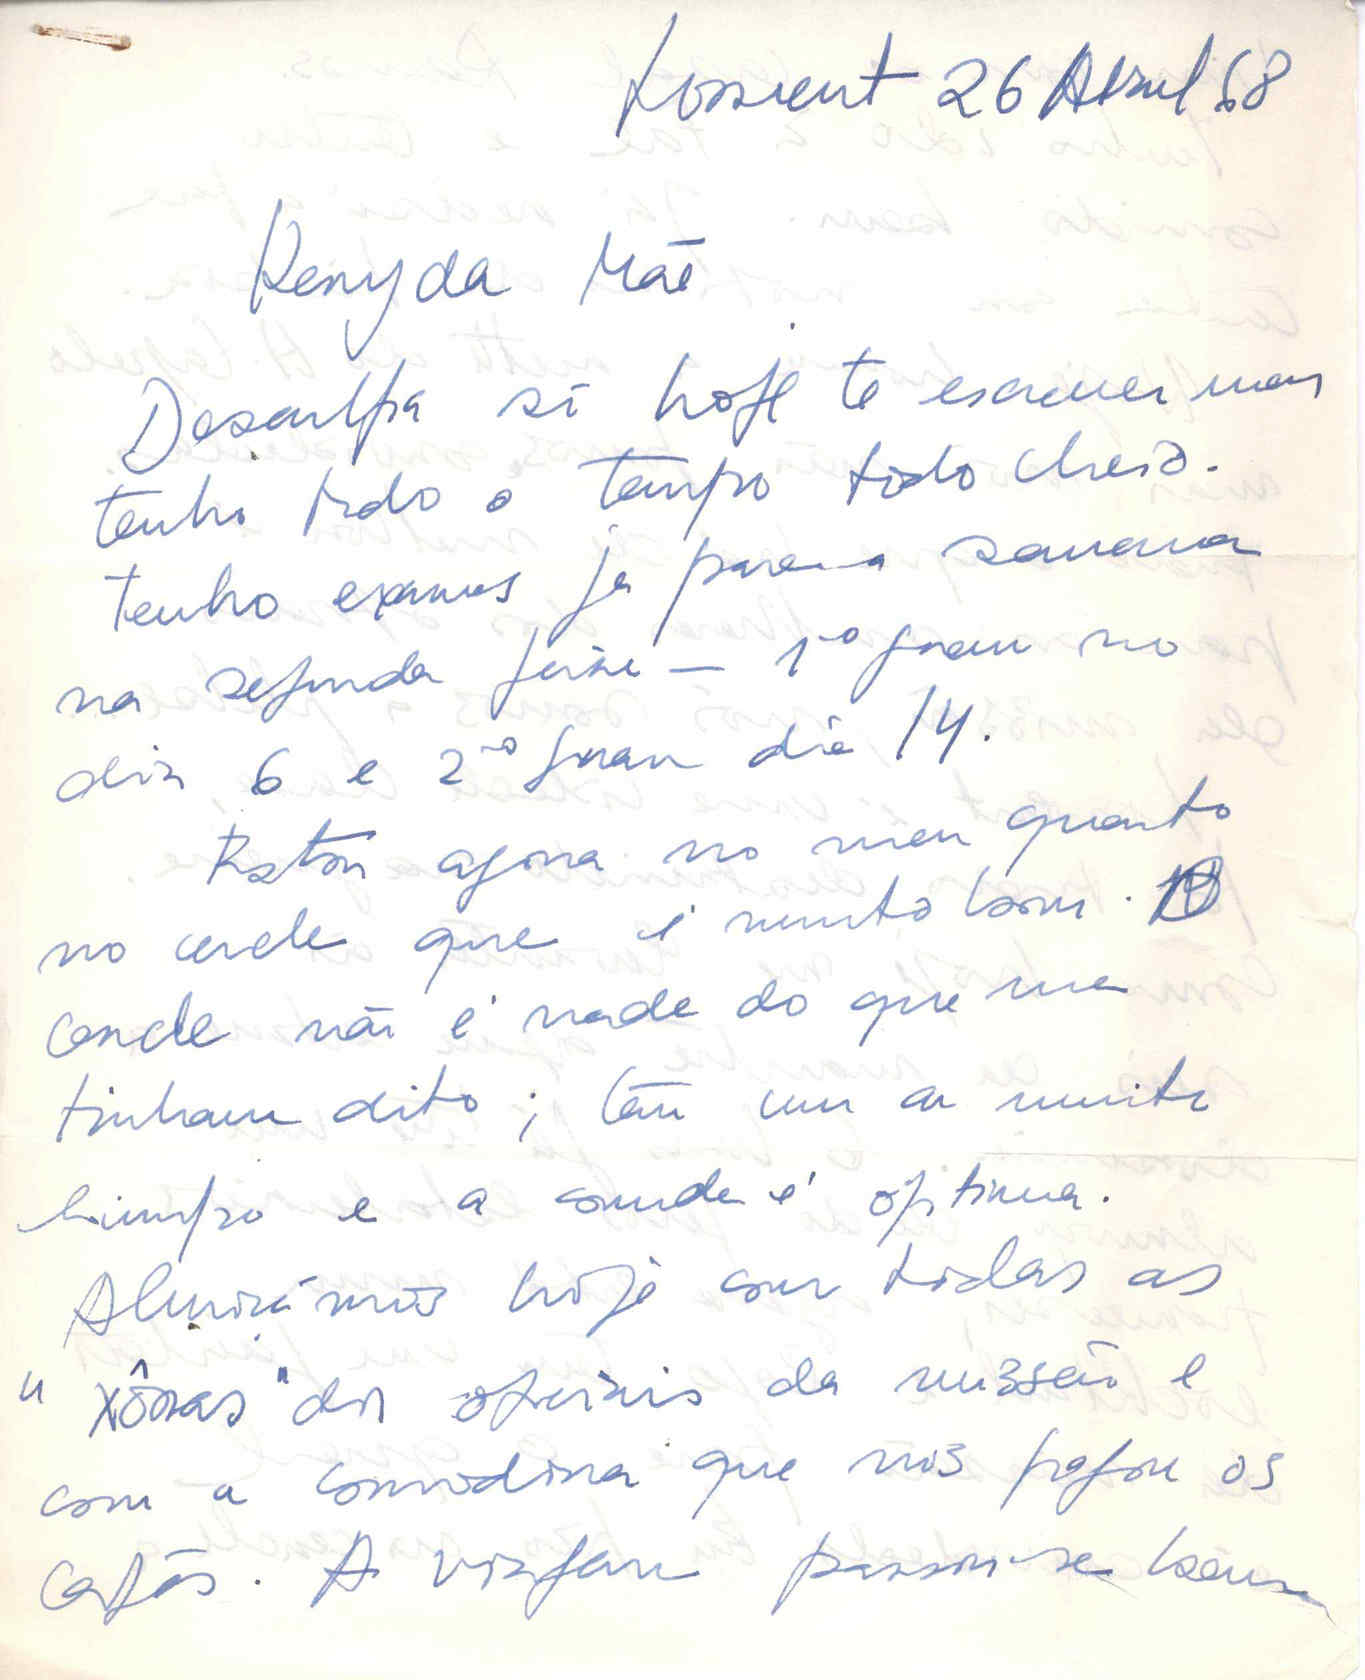 Lorient 26 Abril 68
Mãe
Desculpa só hoje te escrever mas
tenho tido o tempo todo cheio.
Tenho exames já para a semana
na segunda feira — 1º grau no
dia 6 e 2º grau dia 14.
Estou agora no meu quarto
no cercle que é muito bom. O
cercle não é nada do que me
tinham dito; tem um ar muito
limpo e a comida é optima.
Almoçámos hoje com todas as
"xôras" dos oficiais da missão e
com a comodina que nos pagou os
cafés. A viagem passou-se bem